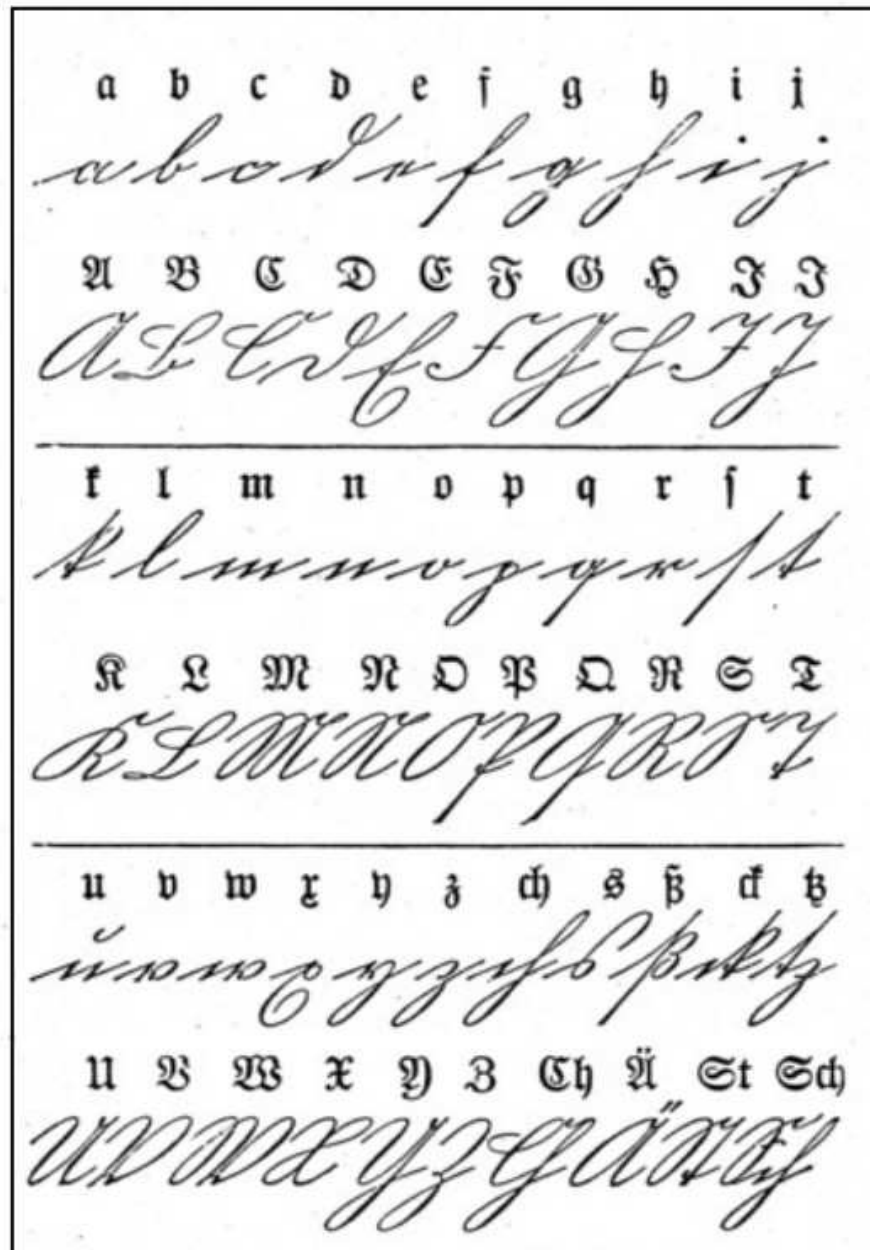 a b c d e f g h i j
a b c d e f g h i j
A B C D E F G H I J
A B C D E F G H I J
k l m n o p q r ſ t
k l m n o p q r ſ t
K L M N O P Q R S T
K L M N O P Q R S T
u v w x y z ch s ß ck tz
u v w x y z ch s ß ck tz
U V W X Y Z Ch Ä St Sch
U V W X Y Z Ch Ä St Sch